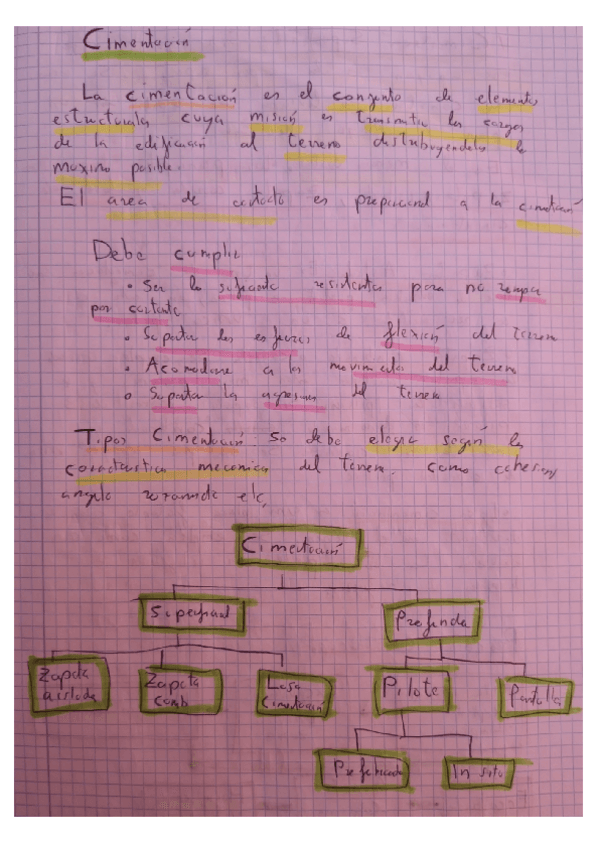 Cimentación
La cimentación es el conjunto de elementos
estructurales cuya misión es transmitir las cargas
de la edificación al terreno distribuyendolas lo
maximo posible.
El area de contacto es proporcional a la cimentación
Debe cumplir
• Ser lo suficiente resistente para no romper
por cortante
• Soportar los esfuerzos de flexión del terreno
• Acomodarse a los movimientos del terreno
• Soportar la agresion del terreno
Tipos Cimentación: Se debe elegir según las
caracteristicas mecanica del terreno. como cohesion,
angulo rozamiento etc.
Cimentación
Superficial Profunda
Zapata aislada Zapata comb Losa Cimentación Pilote Pantalla
Prefabricado In situ